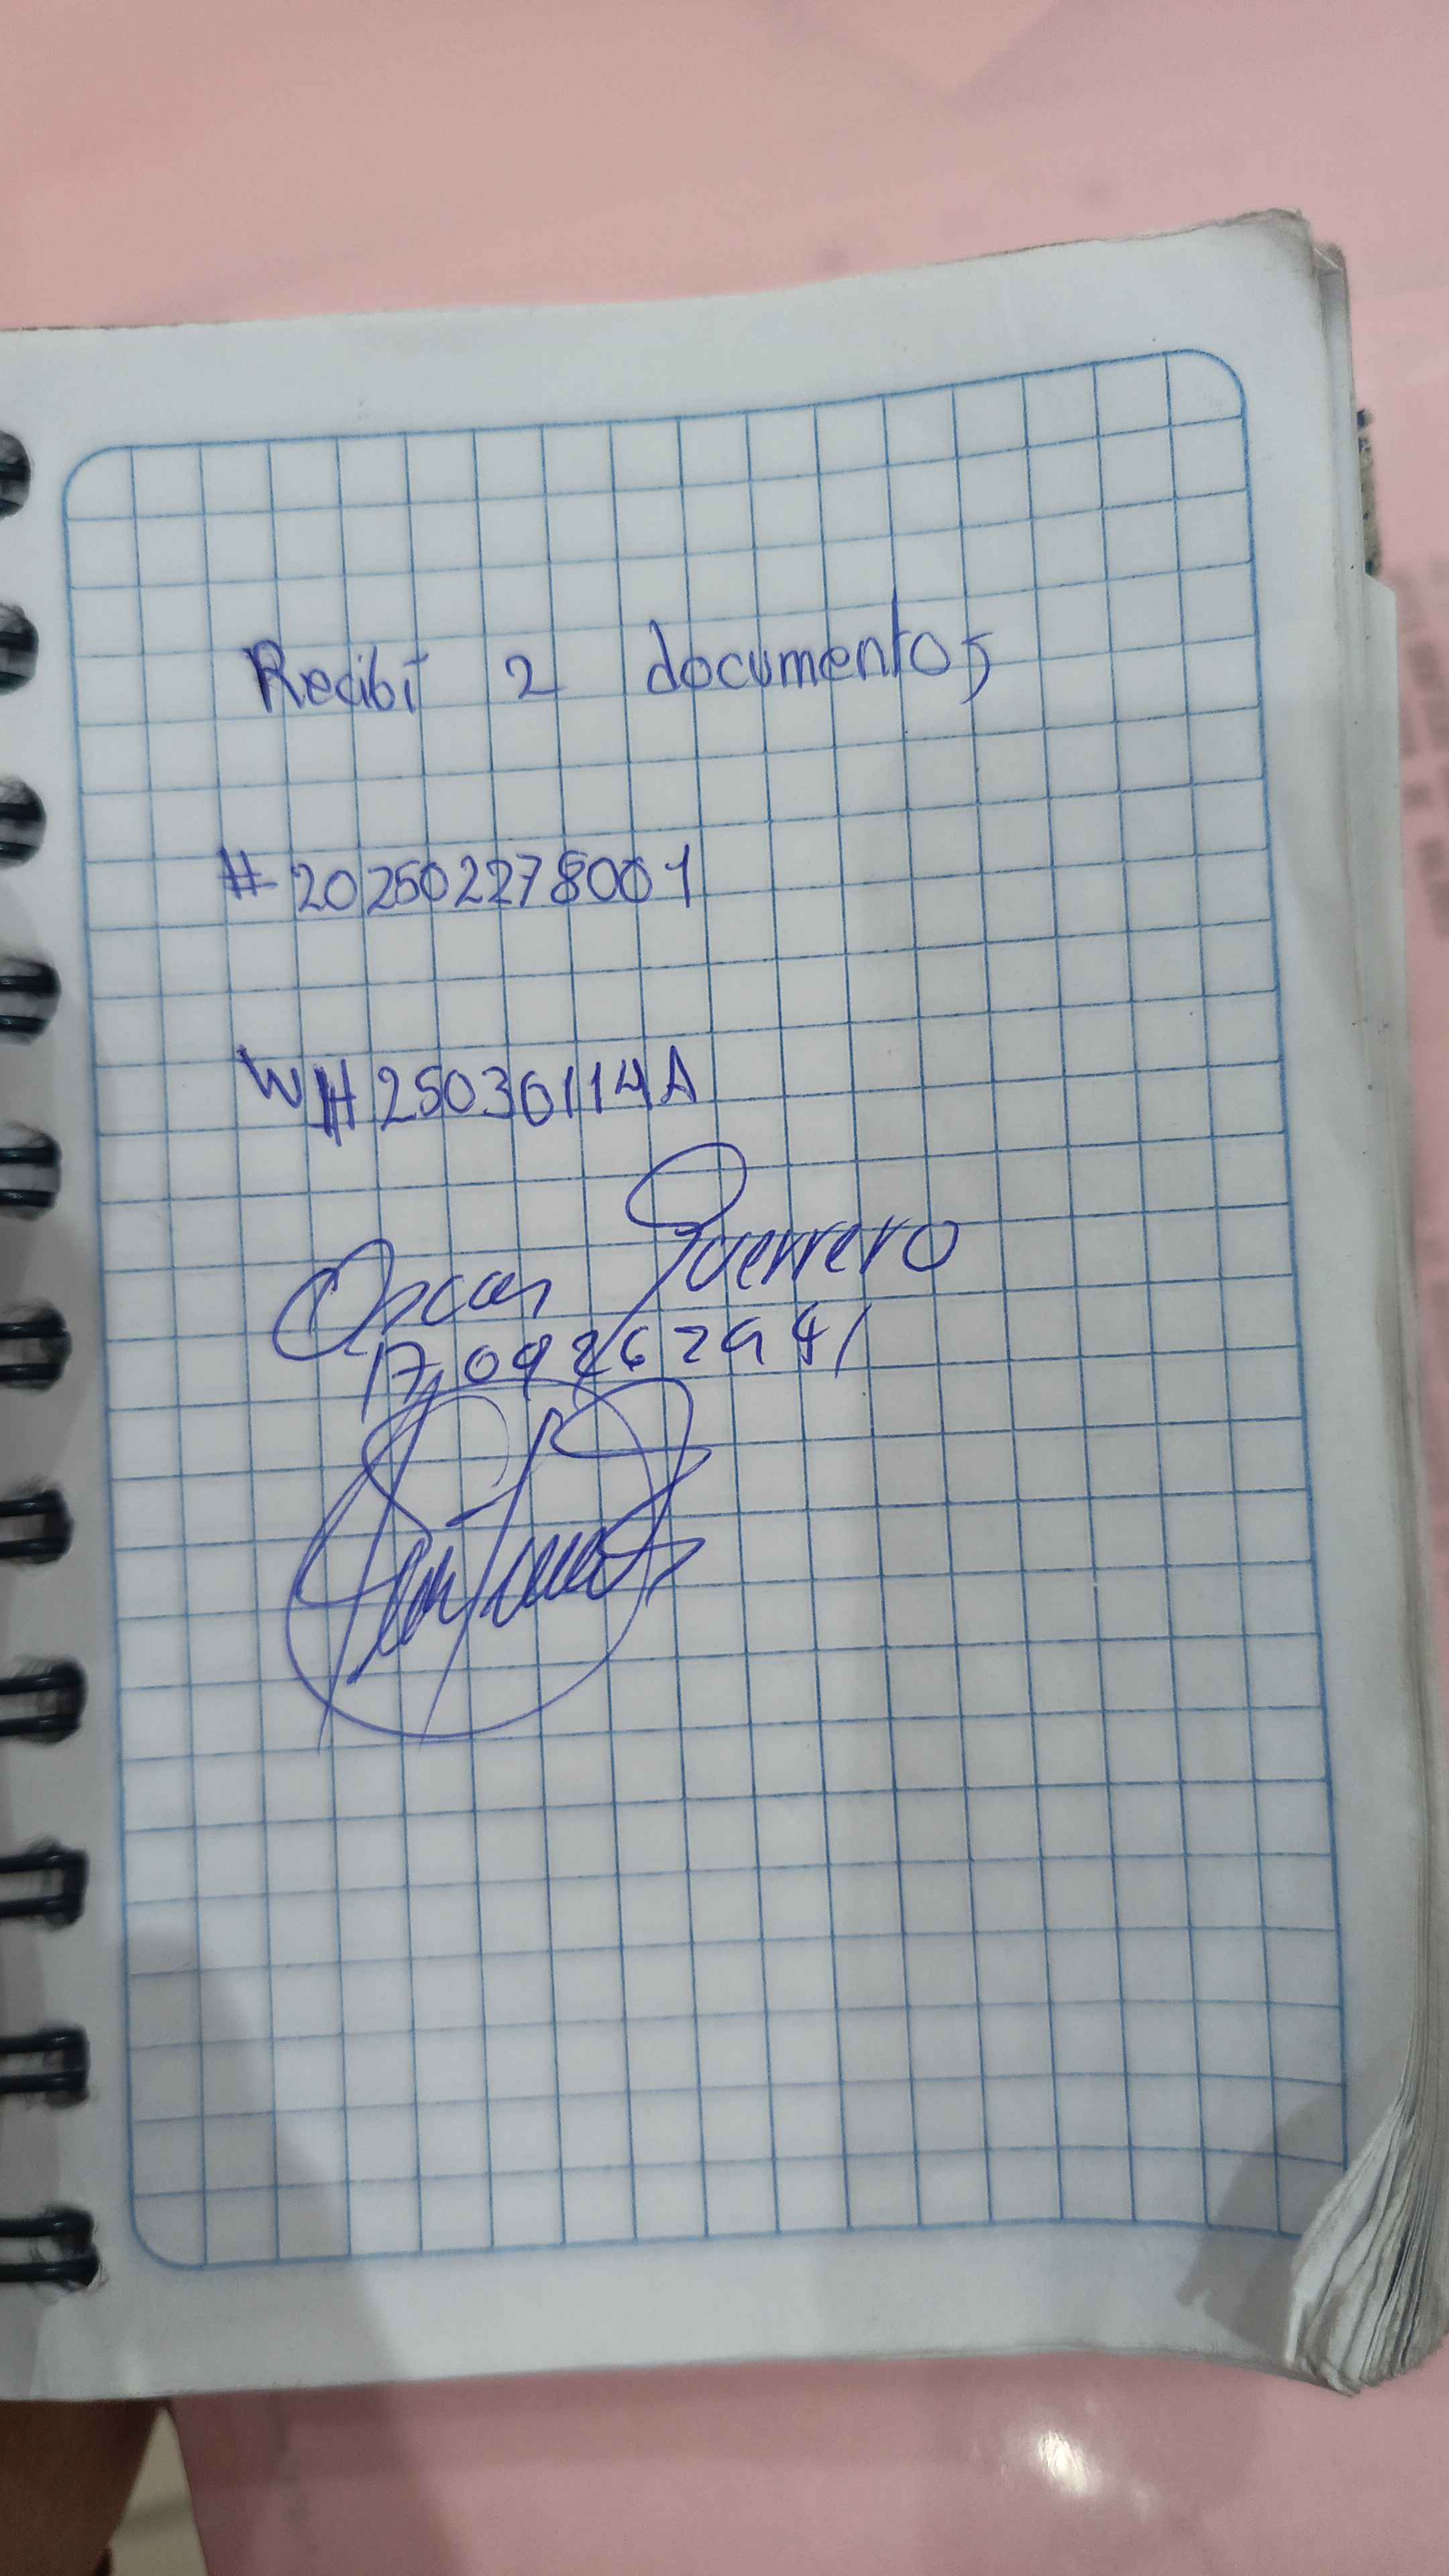 Recibí 2 documentos
# 202502278001
WH25036114A
Oscar Guerrero